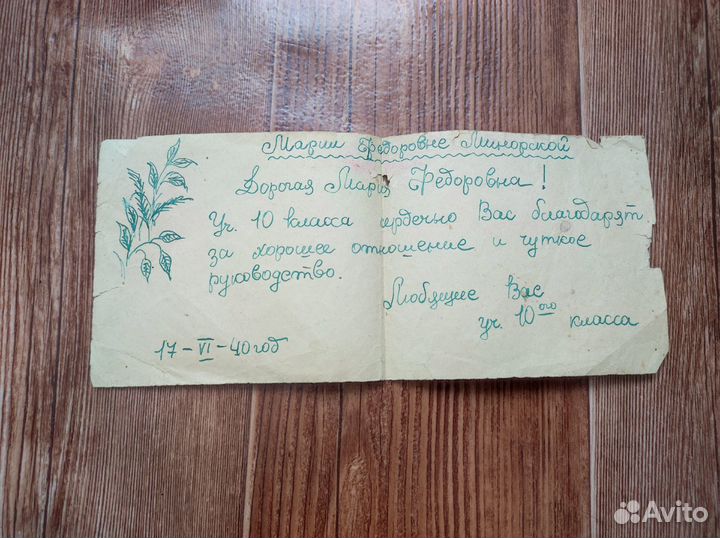 Марии Федоровне Минорской
Дорогая Мария Федоровна!
Уч. 10 класса сердечно Вас благодарят
за хорошее отношение и чуткое
руководство.
Любящие Вас
уч. 10ого класса
17-VI-40 год
Avito